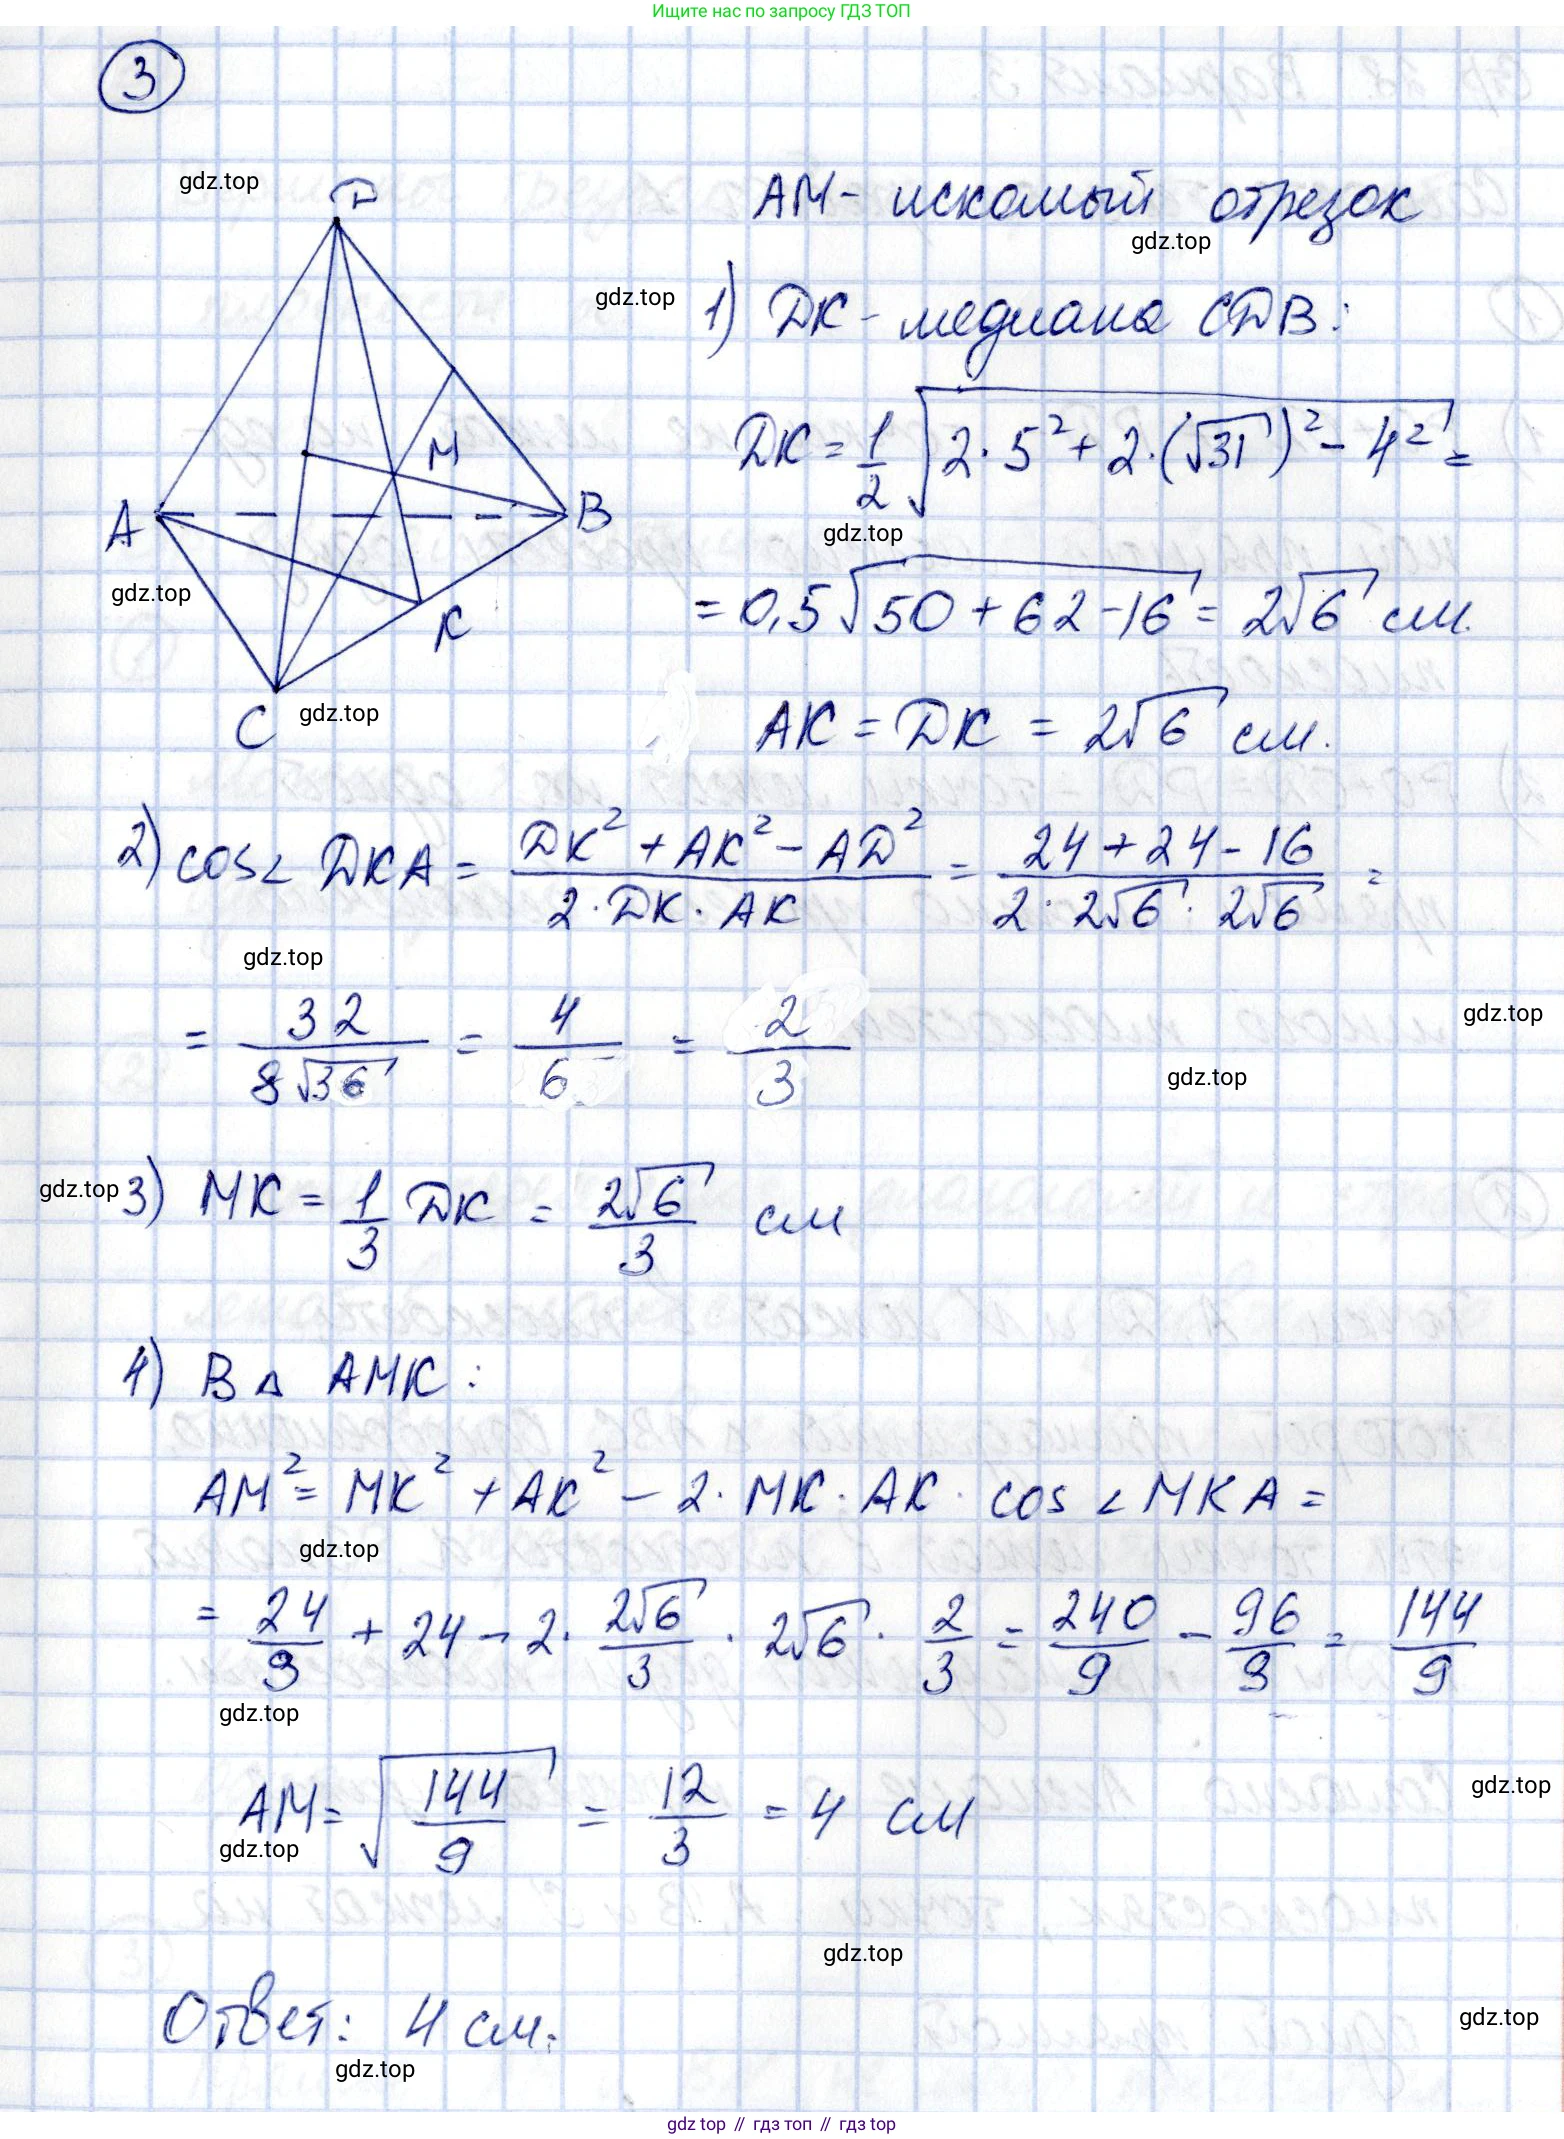 Ищите нас по запросу ГДЗ ТОП
3
gdz.top
D
AM - искомый отрезок
gdz.top
gdz.top
1) DK - медиана CDB:
DK = 1/2 √(2·5² + 2·(√31)² - 4²) =
M
A
B
gdz.top
gdz.top
= 0,5√(50 + 62 - 16) = 2√6 см.
K
C
gdz.top
AK = DK = 2√6 см.
2) cos∠ DKA = (DK² + AK² - AD²)/(2·DK·AK) = (24 + 24 - 16)/(2·2√6·2√6) =
gdz.top
= 32/(8√36) = 4/6 = 2/3
gdz.top
gdz.top
gdz.top
3) MK = 1/3 DK = 2√6/3 см
4) В △ AMK:
AM² = MK² + AK² - 2·MK·AK·cos∠MKA =
gdz.top
= 24/9 + 24 - 2·2√6/3·2√6·2/3 = 240/9 - 96/9 = 144/9
gdz.top
AM = √(144/9) = 12/3 = 4 см
gdz.top
gdz.top
gdz.top
Ответ: 4 см.
gdz.top
gdz.top
gdz top // гдз топ // гдз top